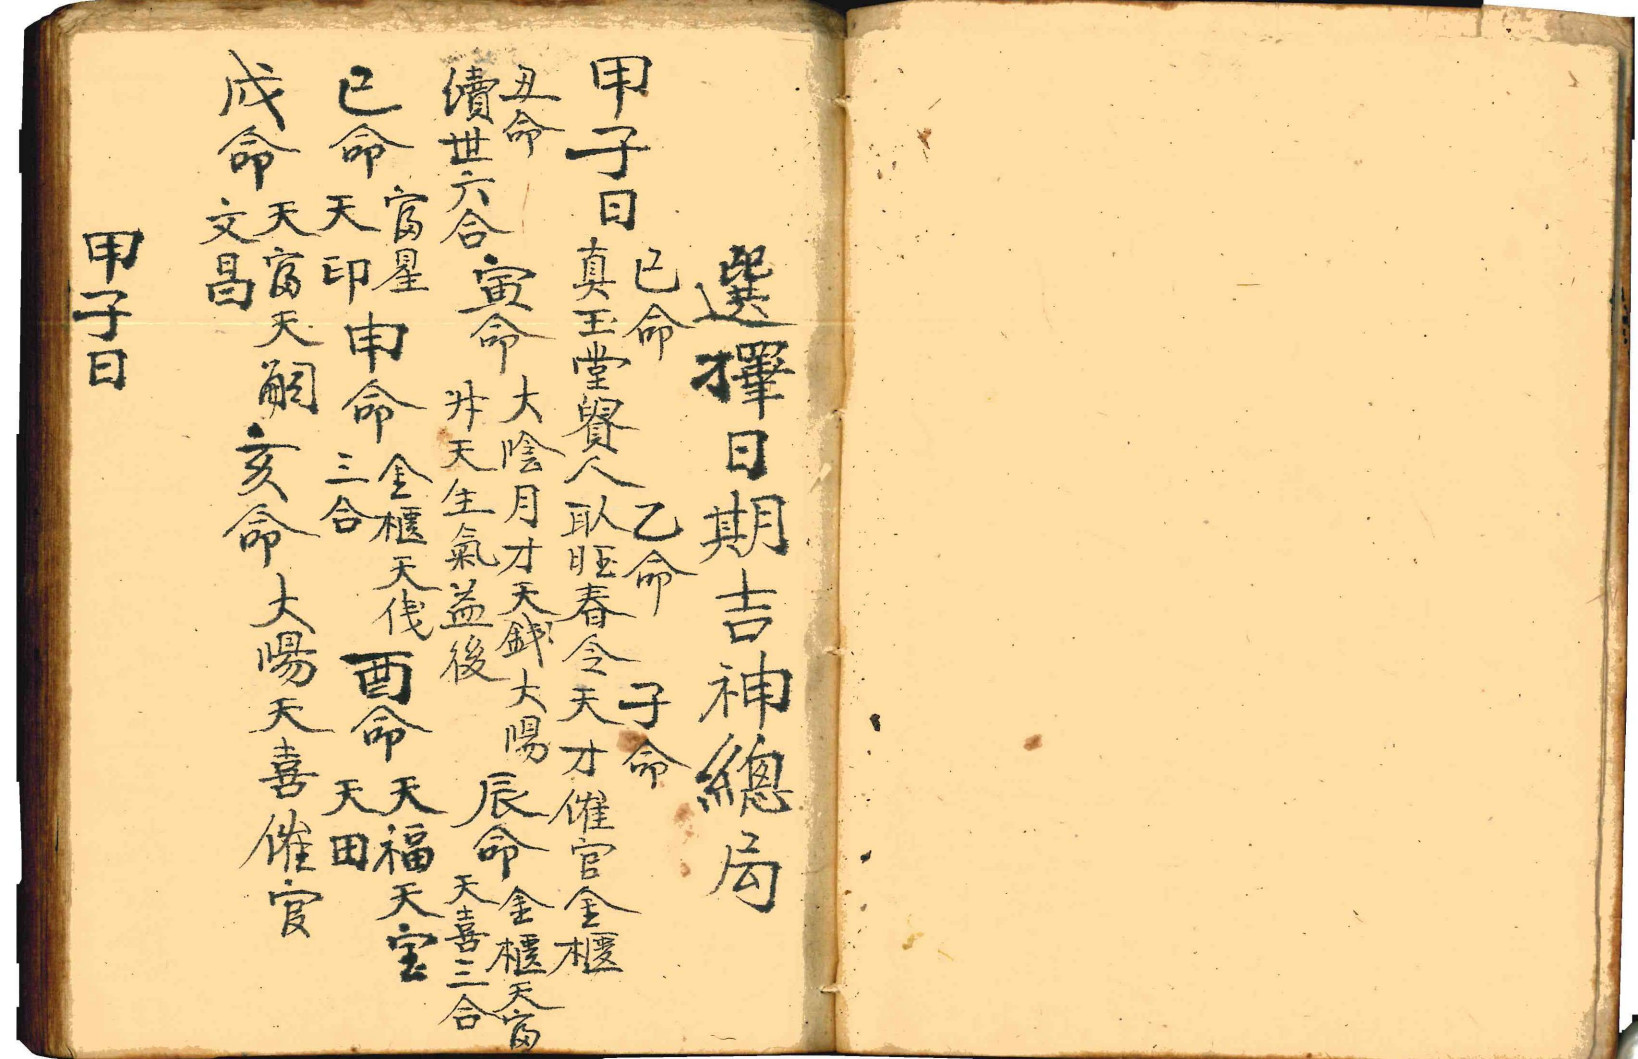 選擇日期吉神總局
己命 乙命 子命
甲子日 真玉堂貴人 臥旺春令天才催官金櫃
丑命 續世六合 寅命 大陰月才天錢大陽 升天生氣益後 辰命 金櫃天富 天喜三合
巳命 富星 天印 申命 金櫃天伐 三合 酉命 天福天宝 天田
戍命 天富天嗣 文昌 亥命 大陽天喜催官
甲子日